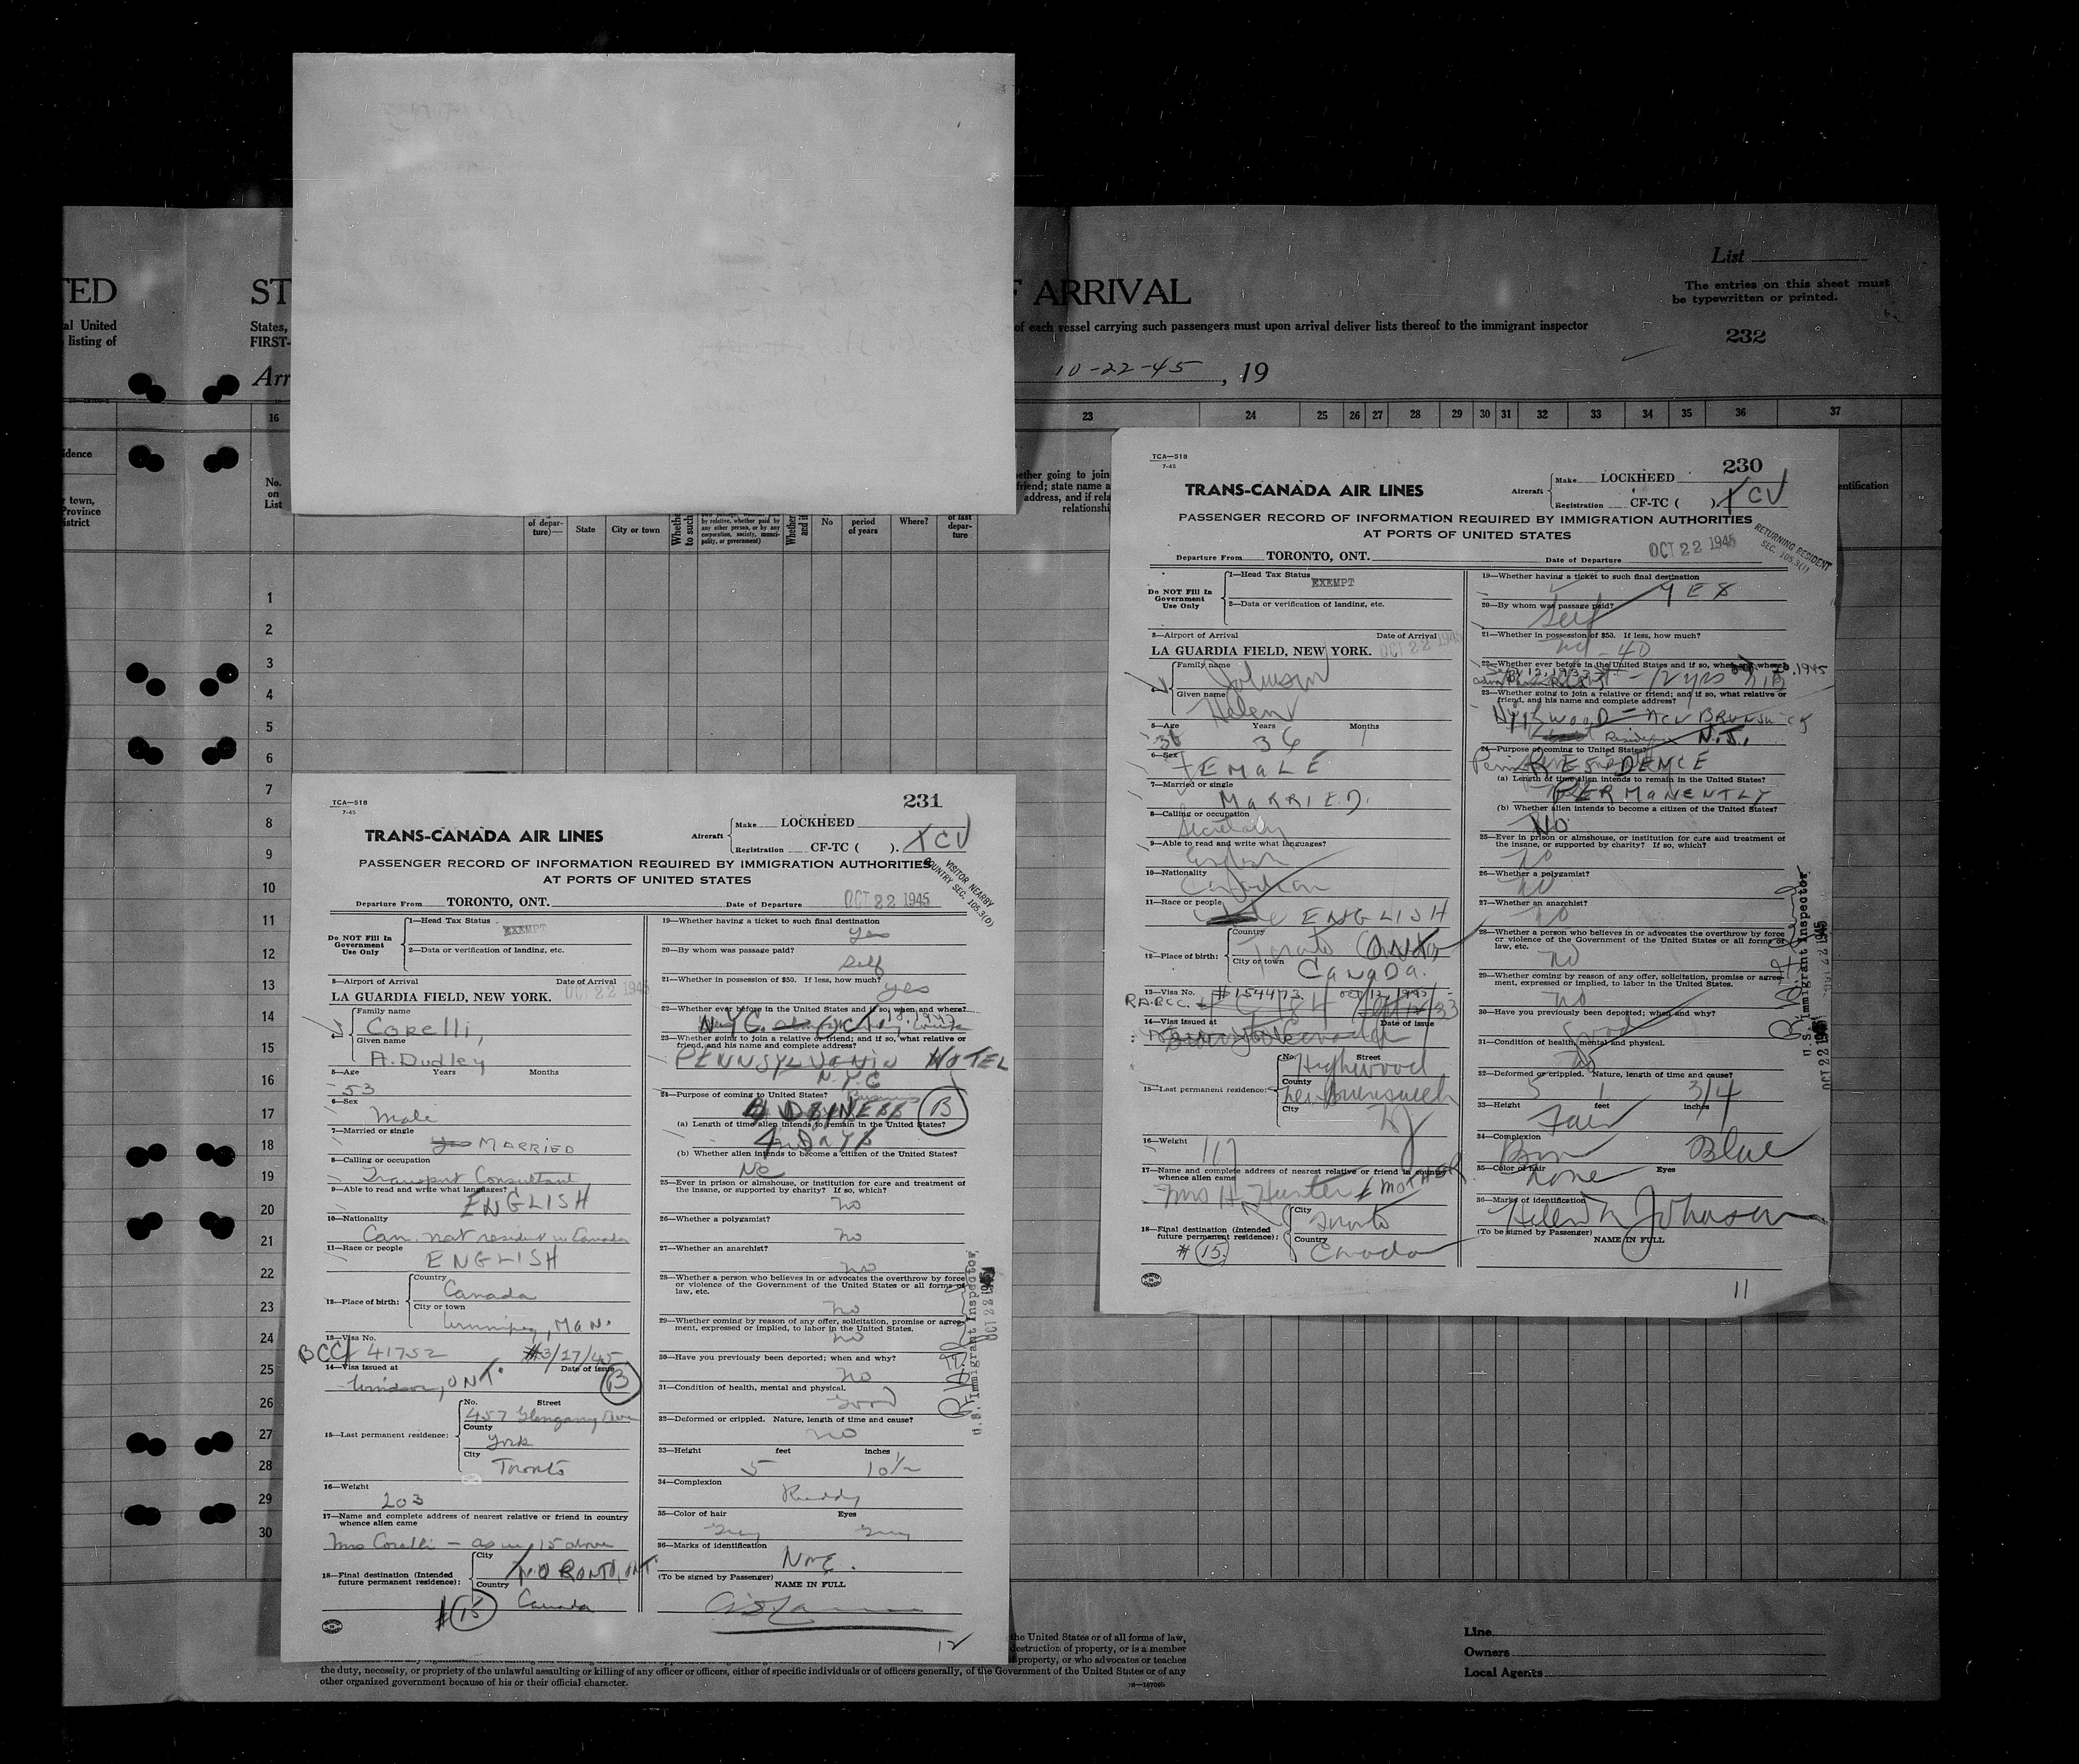 TED
al United
listing of
ST
F ARRIVAL
States,
of each vessel carrying such passengers must upon arrival deliver lists thereof to the immigrant inspector
FIRST-
List
The entries on this sheet must
be typewritten or printed.
232
Arr
10-22-45, 19
16 23 24 25 26 27 28 29 30 31 32 33 34 35 36 37
idence
town,
Province
istrict
No.
on
List
of depar-
ture)—
State
City or town
Whethe
to such
by relative, whether paid by
any other person, or by any
corporation, society, munici-
pality, or government)
No
period
of years
Where?
of last
depar-
ture
ether going to join
friend; state name a
address, and if rela
relationshi
entification
1
2
3
4
5
6
7
8
9
10
11
12
13
14
15
16
17
18
19
20
21
22
23
24
25
26
27
28
29
30
TCA—518
7-45
230
TRANS-CANADA AIR LINES
Aircraft
Make LOCKHEED
Registration CF-TC ( ). TCV
PASSENGER RECORD OF INFORMATION REQUIRED BY IMMIGRATION AUTHORITIES
AT PORTS OF UNITED STATES
RETURNING RESIDENT
SEC. 105.3(1)
Departure From TORONTO, ONT. Date of Departure OCT 22 1945
Do NOT Fill In
Government
Use Only
1—Head Tax Status EXEMPT
2—Data or verification of landing, etc.
3—Airport of Arrival Date of Arrival
LA GUARDIA FIELD, NEW YORK. OCT 22 1945
4
Family name
Johnson
Given name
Helen
5—Age Years Months
36 36
6—Sex
FEMALE
7—Married or single
MARRIED.
8—Calling or occupation
Secretary
9—Able to read and write what languages?
English
10—Nationality
Canadian
11—Race or people
ENGLISH
12—Place of birth:
Country
Toronto
City or town
Canada.
13—Visa No. #154473
14—Visa issued at Date of issue
15—Last permanent residence:
No. Street
Highwood
County
New Brunswick
City
NJ
16—Weight
117
17—Name and complete address of nearest relative or friend in country
whence alien came
Mrs H. Hunter MOTHER
18—Final destination (Intended
future permanent residence):
City
Toronto
Country
Canada
# 15
19—Whether having a ticket to such final destination
YES
20—By whom was passage paid?
Self
21—Whether in possession of $50. If less, how much?
no - 40
22—Whether ever before in the United States and if so, when and where?
23—Whether going to join a relative or friend; and if so, what relative or
friend, and his name and complete address?
Highwood - New BRUNSWICK
N.J.
24—Purpose of coming to United States?
RESIDENCE
(a) Length of time alien intends to remain in the United States?
PERMANENTLY
(b) Whether alien intends to become a citizen of the United States?
NO
25—Ever in prison or almshouse, or institution for care and treatment of
the insane, or supported by charity? If so, which?
no
26—Whether a polygamist?
no
27—Whether an anarchist?
no
28—Whether a person who believes in or advocates the overthrow by force
or violence of the Government of the United States or all forms of
law, etc.
no
29—Whether coming by reason of any offer, solicitation, promise or agree-
ment, expressed or implied, to labor in the United States.
no
30—Have you previously been deported; when and why?
31—Condition of health, mental and physical.
Good
32—Deformed or crippled. Nature, length of time and cause?
no
33—Height feet inches
5 1 3/4
34—Complexion
Fair
35—Color of hair Eyes
Brn Blue
36—Marks of identification
none
Helen M Johnson
(To be signed by Passenger) NAME IN FULL
U.S. Immigrant Inspector,
OCT 22 1945
11
TCA—518
7-45
231
TRANS-CANADA AIR LINES
Aircraft
Make LOCKHEED
Registration CF-TC ( ). TCV
PASSENGER RECORD OF INFORMATION REQUIRED BY IMMIGRATION AUTHORITIES
AT PORTS OF UNITED STATES
VISITOR NEARBY
COUNTRY SEC. 105.3(D)
Departure From TORONTO, ONT. Date of Departure OCT 22 1945
Do NOT Fill In
Government
Use Only
1—Head Tax Status EXEMPT
2—Data or verification of landing, etc.
3—Airport of Arrival Date of Arrival
LA GUARDIA FIELD, NEW YORK. OCT 22 1945
4
Family name
Corelli,
Given name
A. Dudley
5—Age Years Months
53
6—Sex
Male
7—Married or single
yes MARRIED
8—Calling or occupation
Transport Consultant
9—Able to read and write what languages?
ENGLISH
10—Nationality
Can. nat resident in Canada
11—Race or people
ENGLISH
12—Place of birth:
Country
Canada
City or town
Winnipeg, MAN.
13—Visa No.
BCC 41752 #3/27/45
14—Visa issued at Date of issue
Windsor, ONT. B
15—Last permanent residence:
No. Street
457 Glengarry Ave
County
York
City
Toronto
16—Weight
203
17—Name and complete address of nearest relative or friend in country
whence alien came
Mrs Corelli - as in 15 above
18—Final destination (Intended
future permanent residence):
City
TORONTO, ONT.
Country
Canada
# 15
19—Whether having a ticket to such final destination
yes
20—By whom was passage paid?
Self
21—Whether in possession of $50. If less, how much?
yes
22—Whether ever before in the United States and if so, when and where?
N.Y.C.
23—Whether going to join a relative or friend; and if so, what relative or
friend, and his name and complete address?
PENNSYLVANIA HOTEL
N.Y.C
24—Purpose of coming to United States? Business
BUSINESS B
(a) Length of time alien intends to remain in the United States?
4 DAYS
(b) Whether alien intends to become a citizen of the United States?
No
25—Ever in prison or almshouse, or institution for care and treatment of
the insane, or supported by charity? If so, which?
no
26—Whether a polygamist?
no
27—Whether an anarchist?
no
28—Whether a person who believes in or advocates the overthrow by force
or violence of the Government of the United States or all forms of
law, etc.
no
29—Whether coming by reason of any offer, solicitation, promise or agree-
ment, expressed or implied, to labor in the United States.
no
30—Have you previously been deported; when and why?
no
31—Condition of health, mental and physical.
Good
32—Deformed or crippled. Nature, length of time and cause?
no
33—Height feet inches
5 10 1/2
34—Complexion
Ruddy
35—Color of hair Eyes
Grey Grey
36—Marks of identification
None.
(To be signed by Passenger) NAME IN FULL
U.S. Immigrant Inspector,
OCT 22 1945
12
the United States or of all forms of law,
destruction of property, or is a member
property, or who advocates or teaches
the duty, necessity, or propriety of the unlawful assaulting or killing of any officer or officers, either of specific individuals or of officers generally, of the Government of the United States or of any
other organized government because of his or their official character.
Line
Owners
Local Agents